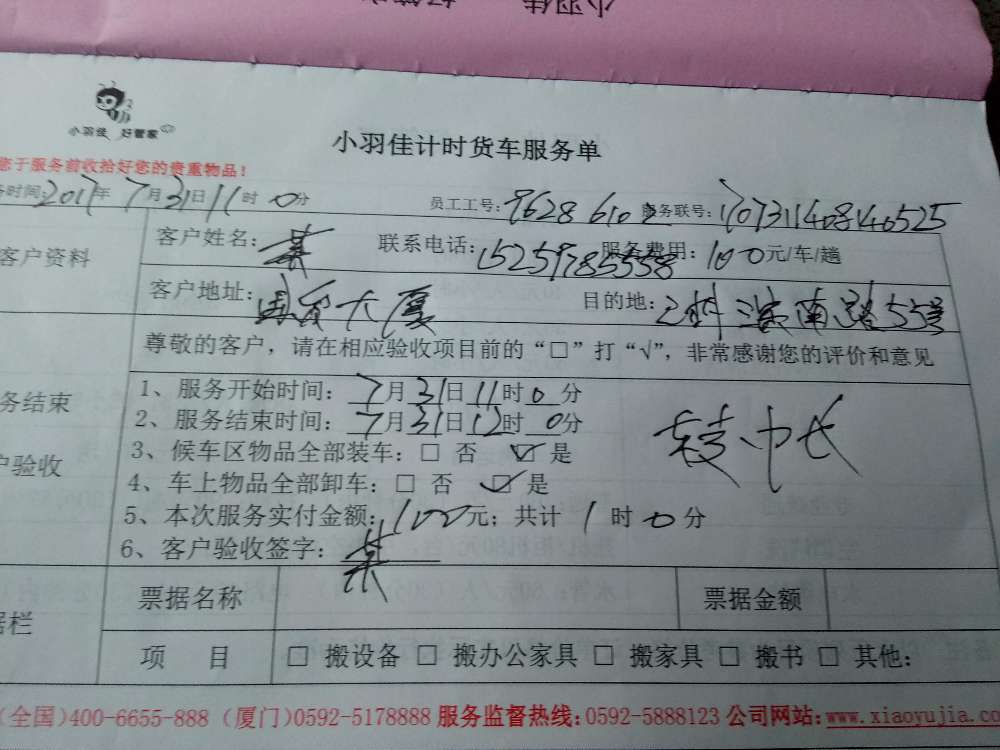 小羽佳
小羽佳 好管家
小羽佳计时货车服务单
您于服务前收拾好您的贵重物品！
务时间：2017年7月31日11时0分 员工工号：9628 610 服务联号：
客户资料
客户姓名： 联系电话：15259785558 服务费用：100元/车/趟
客户地址：国贸大厦 目的地：
尊敬的客户，请在相应验收项目前的“□”打“√”，非常感谢您的评价和意见
务结束
户验收
1、服务开始时间：7月31日11时0分
2、服务结束时间：7月31日12时0分
3、候车区物品全部装车：□ 否 ☑ 是
4、车上物品全部卸车：□ 否 ☑ 是
5、本次服务实付金额：100元；共计1时0分
6、客户验收签字：
据栏
票据名称 票据金额
项 目 □ 搬设备 □ 搬办公家具 □ 搬家具 □ 搬书 □ 其他：
(全国)400-6655-888 (厦门)0592-5178888 服务监督热线：0592-5888123 公司网站：www.xiaoyujia.co